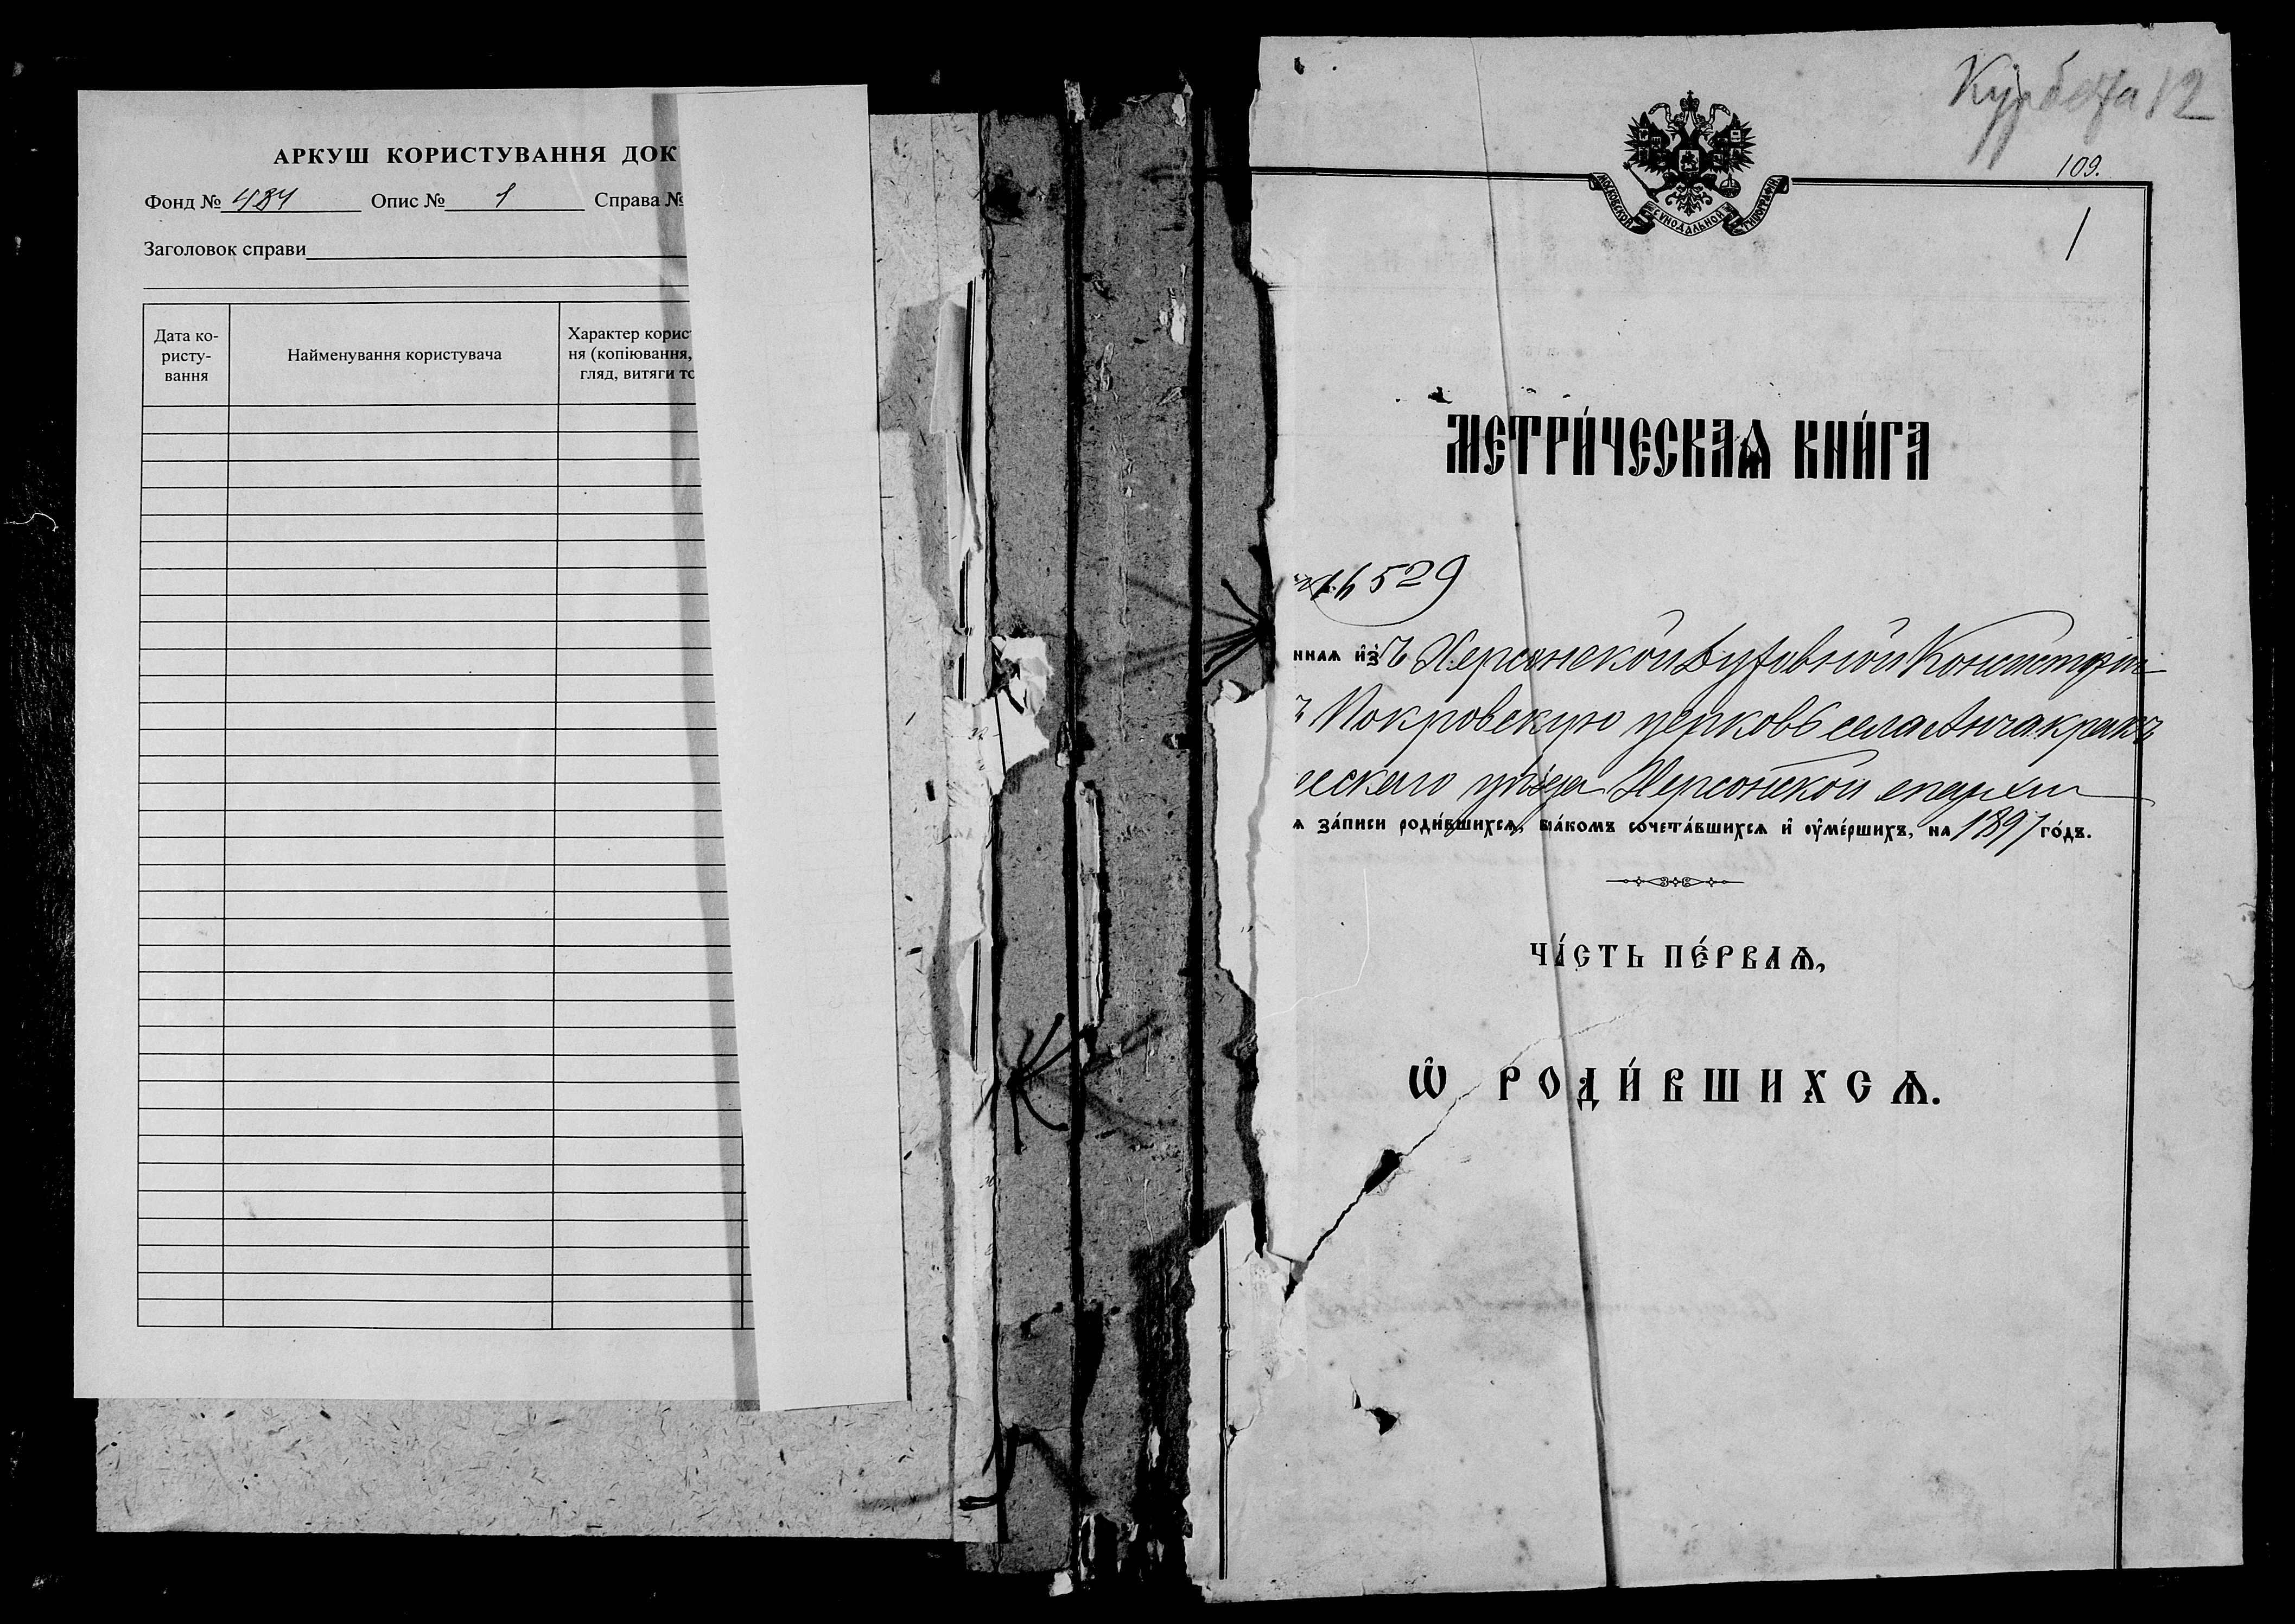 АРКУШ КОРИСТУВАННЯ ДОК
Фонд № 484 Опис № 1 Справа №
Заголовок справи
Дата ко-
ристу-
вання
Найменування користувача
Характер корис
ня (копіювання,
гляд, витяги то
12
109.
1
МОСКОВСКОЙ СѴНОДАЛЬНОЙ ТИПОГРАФІИ
МЕТРИ́ЧЕСКАѦ КНИ́ГА
529
ннаѧ и҆зъ Херсонской Духовной Консисторіи
ъ Покровскую церковь села Анчакракъ
есскаго уѣзда Херсонской епархіи
ѧ за́писи роди́вшихсѧ, бра́комъ сочета́вшихсѧ и҆ оу҆ме́ршихъ, на 1897 го́дъ.
ЧА́СТЬ ПЕ́РВАѦ,
Ѡ҆ РОДИ́ВШИХСѦ.